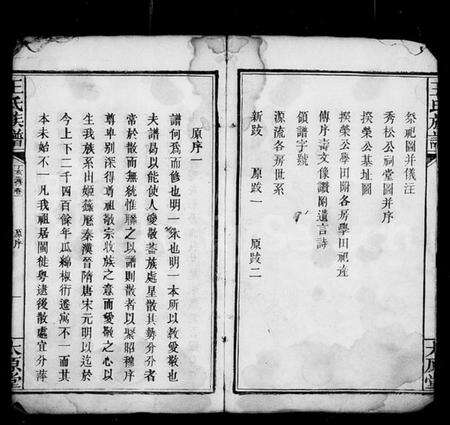 祭祀圖并儀注
秀松公祠堂圖并序
揆榮公基址圖
揆榮公學田附各房學田祀產
傳序壽文像讚附遺言詩
領譜字號
源流各房世系
新跋 原跋一 原跋二
王氏族譜 原序 太原堂
原序一
譜何爲而修也明一本也明一本所以教愛敬也
夫譜曷以能使人愛敬蓋族處星散其勢分分者
常於散而無統惟聯之以譜則散者以緊昭穆序
尊卑別深得尊祖敬宗收族之意而愛敬之心以
生我族系由姬籙歷秦漢晉隋唐宋元明以迄於
今上下二千四百餘年瓜綿椒衍遷寓不一而其
本未始不一凡我祖居閩徙粵遠後散處宜分萍